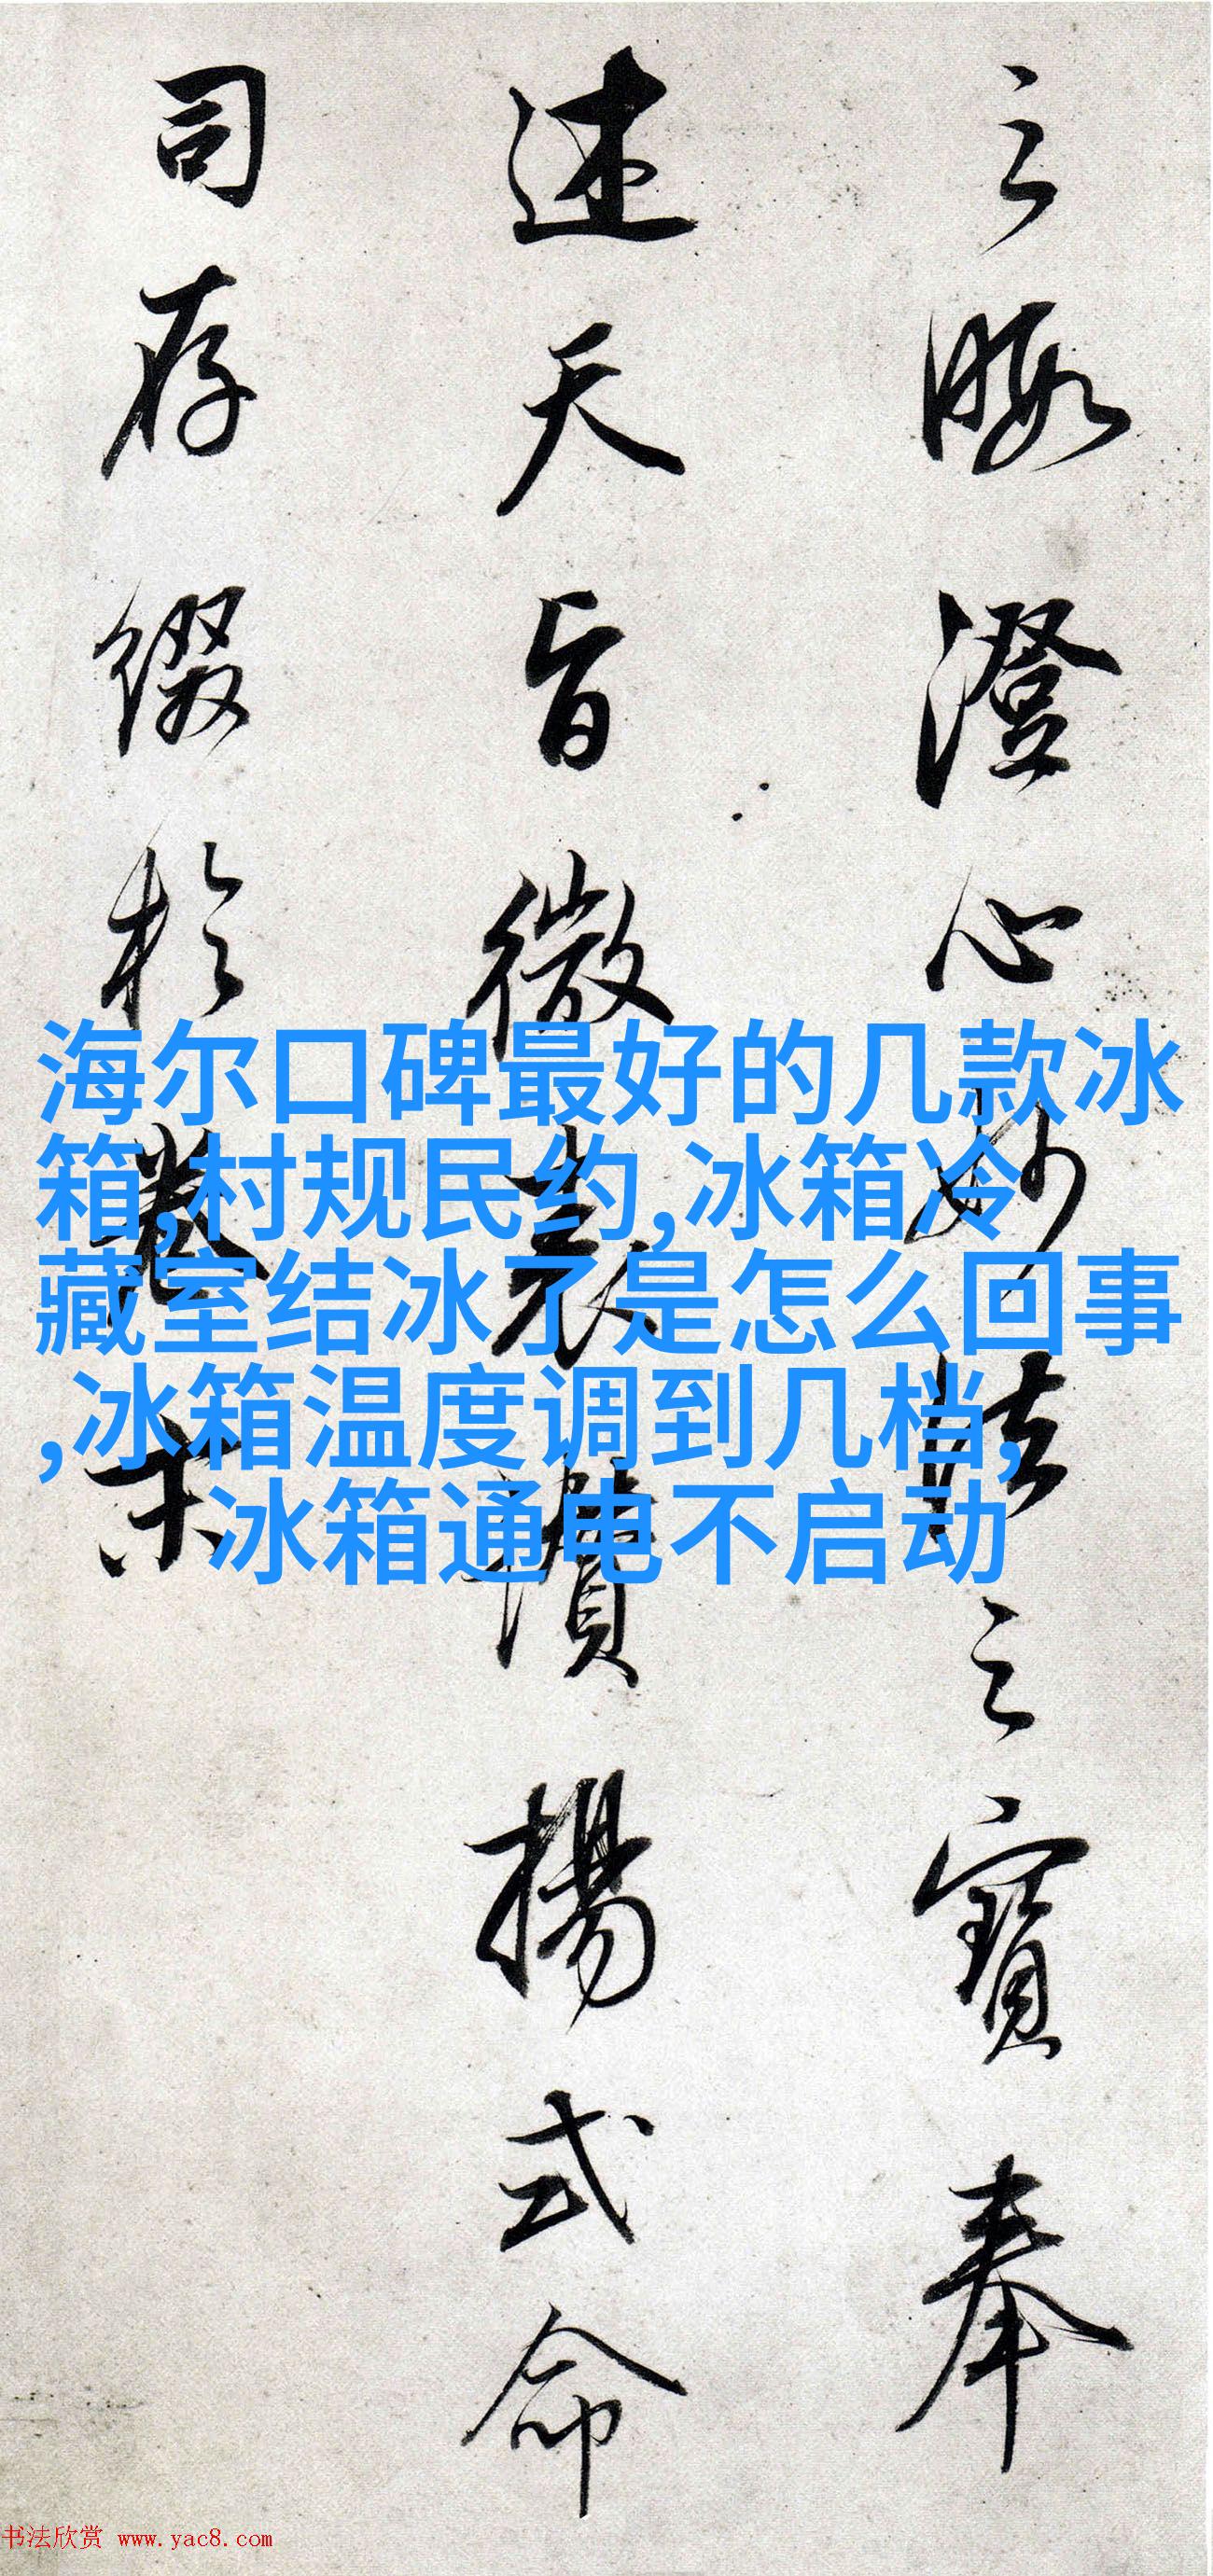 之暇澄心妙法之寶奉
述天旨微表讚揚式命
司存綴於卷末
海尔口碑最好的几款冰
箱,村规民约,冰箱冷
藏室结冰了是怎么回事
,冰箱温度调到几档,
冰箱通电不启动
书法欣赏 www.yac8.com